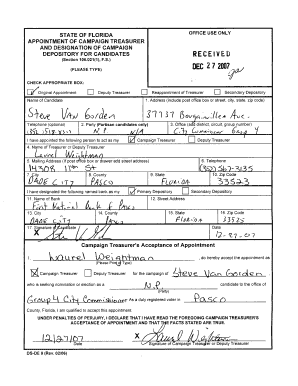 STATE OF FLORIDA
APPOINTMENT OF CAMPAIGN TREASURER
AND DESIGNATION OF CAMPAIGN
DEPOSITORY FOR CANDIDATES
(Section 106.021(1), F.S.)
(PLEASE TYPE)
OFFICE USE ONLY
RECEIVED
DEC 27 2007
CHECK APPROPRIATE BOX:
Original Appointment Deputy Treasurer Reappointment of Treasurer Secondary Depository
Name of Candidate
Steve Van Gorden
1. Address (include post office box or street, city, state, zip code)
37137 Bougainvillea Ave.
Telephone (optional)
2. Party (Partisan candidates only)
N.P. N/A
3. Office (add district, circuit, group number)
City Commissioner Group 4
I have appointed the following person to act as my Campaign Treasurer Deputy Treasurer
4. Name of Treasurer or Deputy Treasurer
Laurel Weightman
5. Mailing Address (if post office box or drawer add street address)
14308 17th St
6. Telephone
(352) 567-3135
7. City
DADE CITY
8. County
PASCO
9. State
FLORIDA
10. Zip Code
33523
I have designated the following named bank as my Primary Depository Secondary Depository
11. Name of Bank
First National Bank of Pasco
12. Street Address
13. City
DADE CITY
14. County
PASCO
15. State
Florida
16. Zip Code
17. Signature of Candidate
X
Date
12-27-07
Campaign Treasurer's Acceptance of Appointment
I, Laurel Weightman, do hereby accept the appointment as
(Please Print or Type)
Campaign Treasurer Deputy Treasurer for the campaign of Steve Van Gorden
who is seeking nomination or election as a N.P. candidate to the office of
(Party)
Group 4 City Commissioner As a duly registered voter in Pasco
County, Florida, I am qualified to accept this appointment.
UNDER PENALTIES OF PERJURY, I DECLARE THAT I HAVE READ THE FOREGOING CAMPAIGN TREASURER'S
ACCEPTANCE OF APPOINTMENT AND THAT THE FACTS STATED ARE TRUE.
12/27/07
Date
X Laurel Weightman
Signature of Campaign Treasurer or Deputy Treasurer
DS-DE 9 (Rev. 02/06)